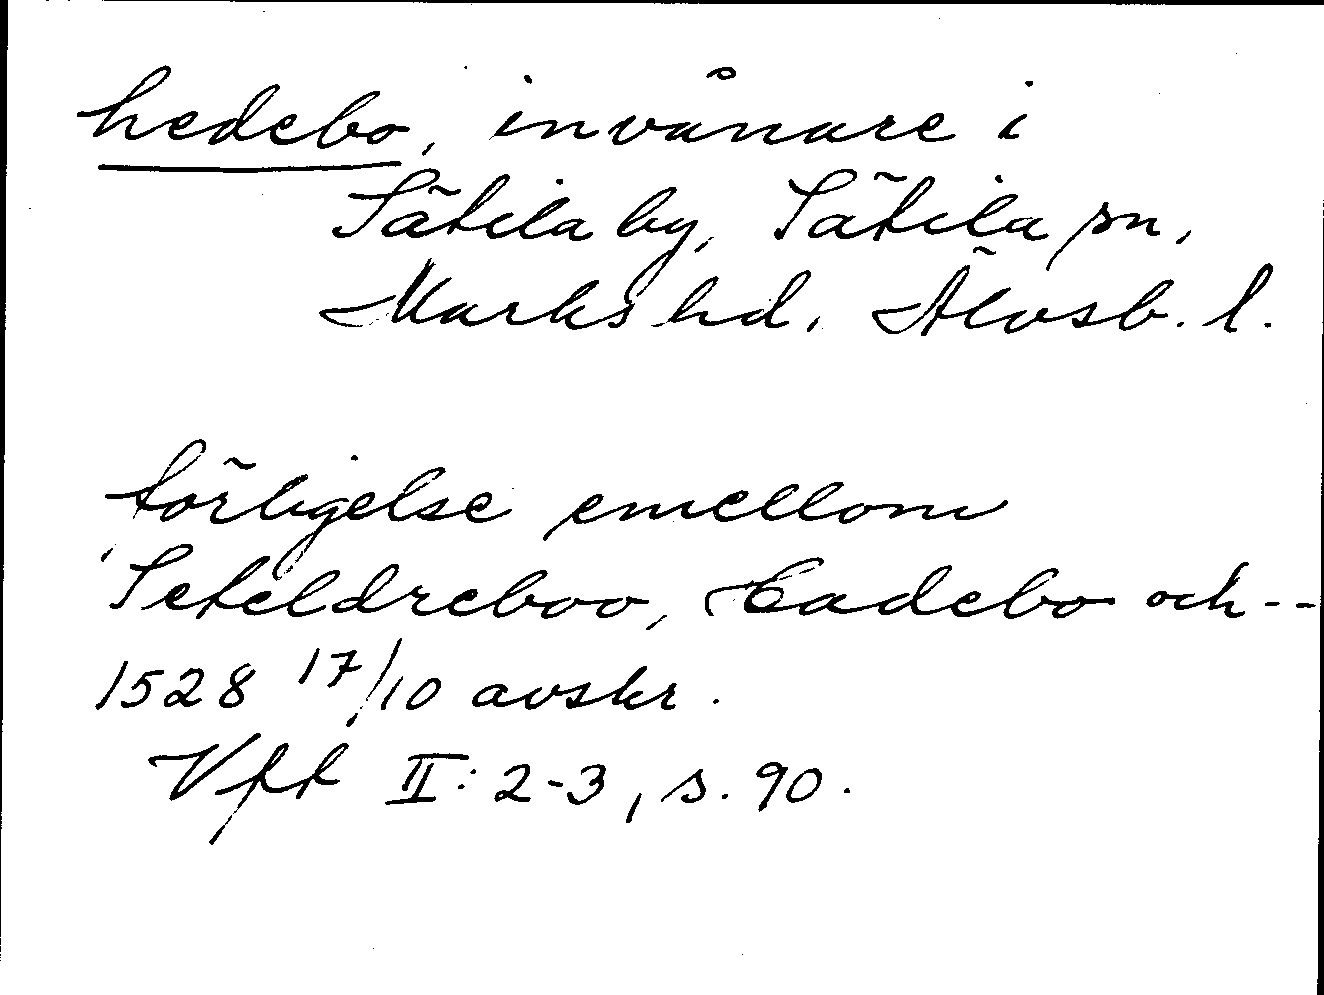 hedebo, invånare i
Sätila by, Sätila sn,
Marks hd, Älvsb. l.
förligelse emellom
Seteldreboo, Eadebo och --
1528 17/10 avskr.
Vft II: 2-3, s. 90.